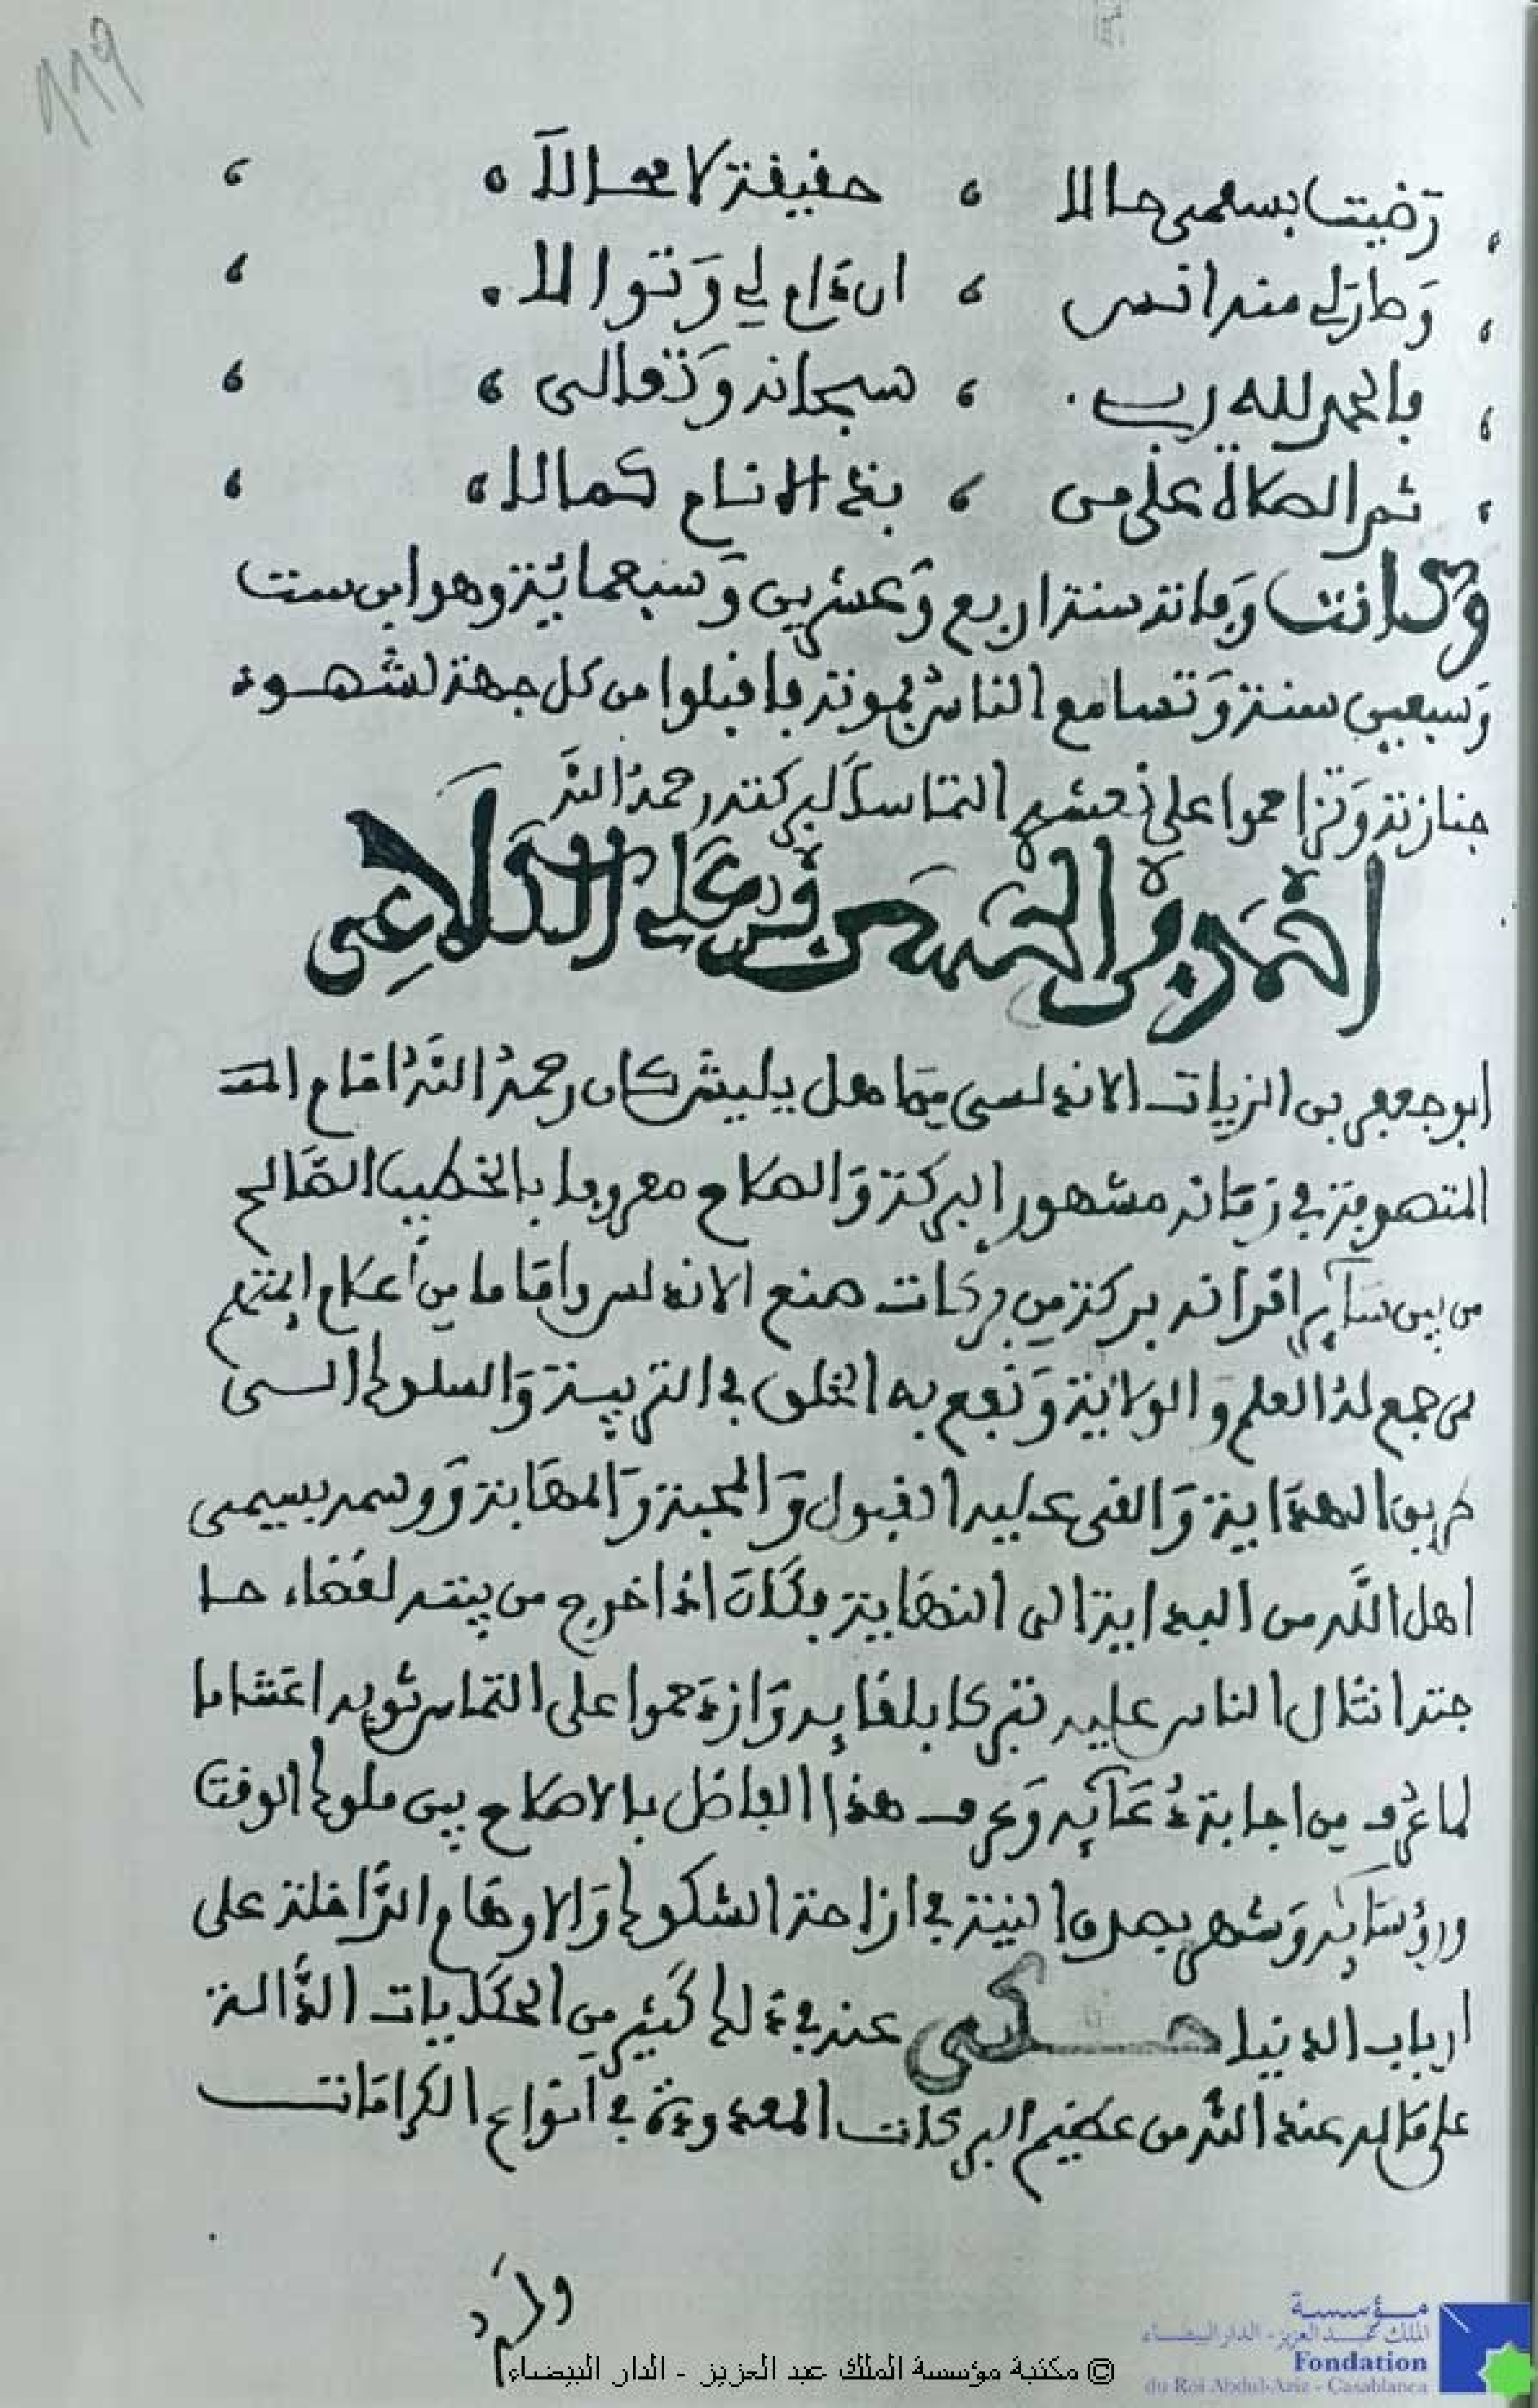 119
رَضيت بسقمى حالا ، حقيقة لا محالا ،
وَطاب لي منه انسى ، ان دام لي وَتوالا
فالحمد لله ربى ، سبحانه وَتعالى ،
ثم الصلاة على من ، بذ الانام كمالا ،
وكانت وفاته سنة اربع وَعشرين وَسبعمائة وهو ابن ست
وَسبعين سنة وَتسامع الناسُ بموته فاقبلوا من كل جهة لشهود
جنازته وَتزاحموا على نعشه التماساً لبركته رحمهُ اللهُ
احمد بن الحسن بن علي الكلاعي
ابو جعفر بن الزيات الاندلسى من اهل بليش كان رحمهُ اللهُ امام
المتصوفة في زمانه مشهور البركة وَالصلاح معروفا بالخطيب الصَّالح
من بين سآير اقرانه بركة من بركات صنع الاندلس واماما من أعلام
من جمع لهُ العلم و الولاية وَنفع به الخلق في التربية وَالسلوك الى
طريق الهداية وَالقى عليه القبول وَالمحبة وَالمهابة وَوسمه بسيمى
اهل اللَّه من البداية الى النهاية فكان اذا خرج من بيته لقضاء حا
جته انثال الناس عليه تبركا بلقايه وَازدحموا على التماس ثوبه اغتناما
لما عُرف من اجابة دُعَآيه وَعرف هذا الفاضل بالاصلاح بين ملوك الوقت
ورؤسَايه وَشهر بصدق النية في ازاحة الشكوك وَالاوهام الدَّاخلة على
ارباب الدنيا حكى عنه في ذلك كَثير من الحكايات الدَّالة
على مَا له عند اللهُ من عظيم البركات المعدودة في انواع الكرامات
© مكتبة مؤسسة الملك عبد العزيز - الدار البيضاء
مؤسسة
الملك عبد العزيز - الدار البيضاء
Fondation
du Roi Abdul-Aziz - Casablanca